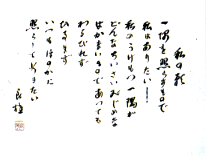 私の形
一隅を照らすもので
私はありたい
私のうけもつ一隅が
どんなちいさいみじめな
はかないものであっても
わるびれず
ひるまず
いつもほのかに
照らして行きたい